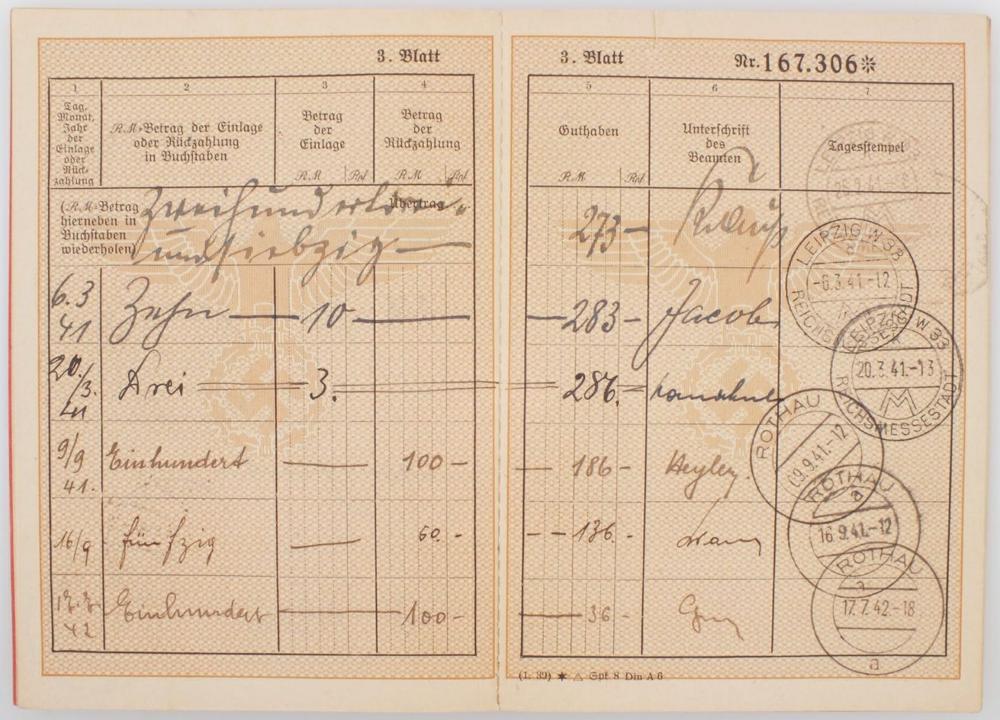 3. Blatt
1 2 3 4
Tag, Monat, Jahr der Einlage oder Rück-zahlung
RM-Betrag der Einlage oder Rückzahlung in Buchstaben
Betrag der Einlage
RM Rpf
Betrag der Rückzahlung
RM Rpf
(RM-Betrag hierneben in Buchstaben wiederholen)
Übertrag
Zweihundertdrei-
undsiebzig
6.3 41 Zehn 10
20./3. 41 Drei 3.
9/9 41. Einhundert 100-
16/9 fünfzig 60.-
17.7. 42 Einhundert 100-
3. Blatt Nr. 167.306*
5 6 7
Guthaben
RM Rpf
Unterschrift des Beamten
Tagesstempel
273-
283- Jacob
286.-
186- Heyler.
136.-
36-
LEIPZIG W 33
-6.3.41.-12
LEIPZIG W 33
20.3.41.-13
REICHSMESSESTADT
ROTHAU
09.9.41.-12
ROTHAU
16.9.41.-12
a
ROTHAU
17.7.42.-18
a
(1. 39) ✶ △ Gpf. 8 Din A 6